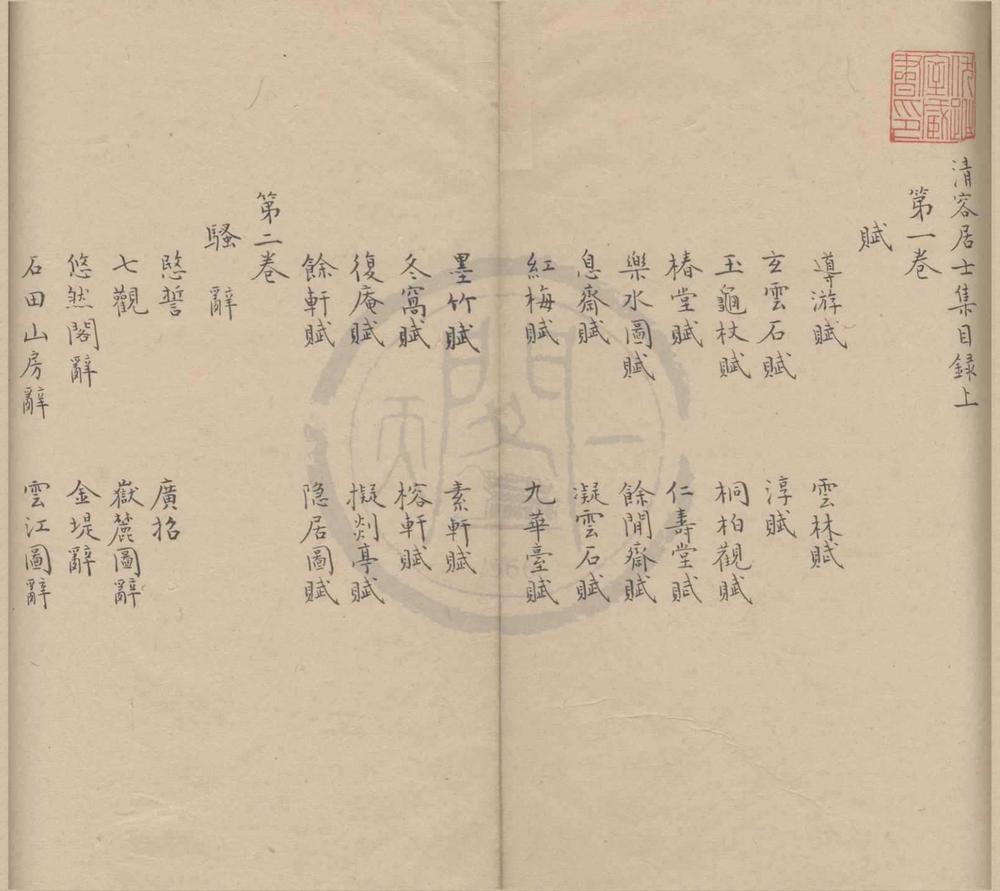 清容居士集目録上
第一卷
賦
導游賦 雲林賦
玄雲石賦 淳賦
玉龜杖賦 桐柏觀賦
椿堂賦 仁壽堂賦
樂水圖賦 餘閒齋賦
息齋賦 凝雲石賦
紅梅賦 九華臺賦
墨竹賦 素軒賦
冬窩賦 榕軒賦
復庵賦 擬剡亭賦
餘軒賦 隐居圖賦
第二卷
騷辭
愍誓 廣招
七觀 嶽麓圖辭
悠然閣辭 金堤辭
石田山房辭 雲江圖辭